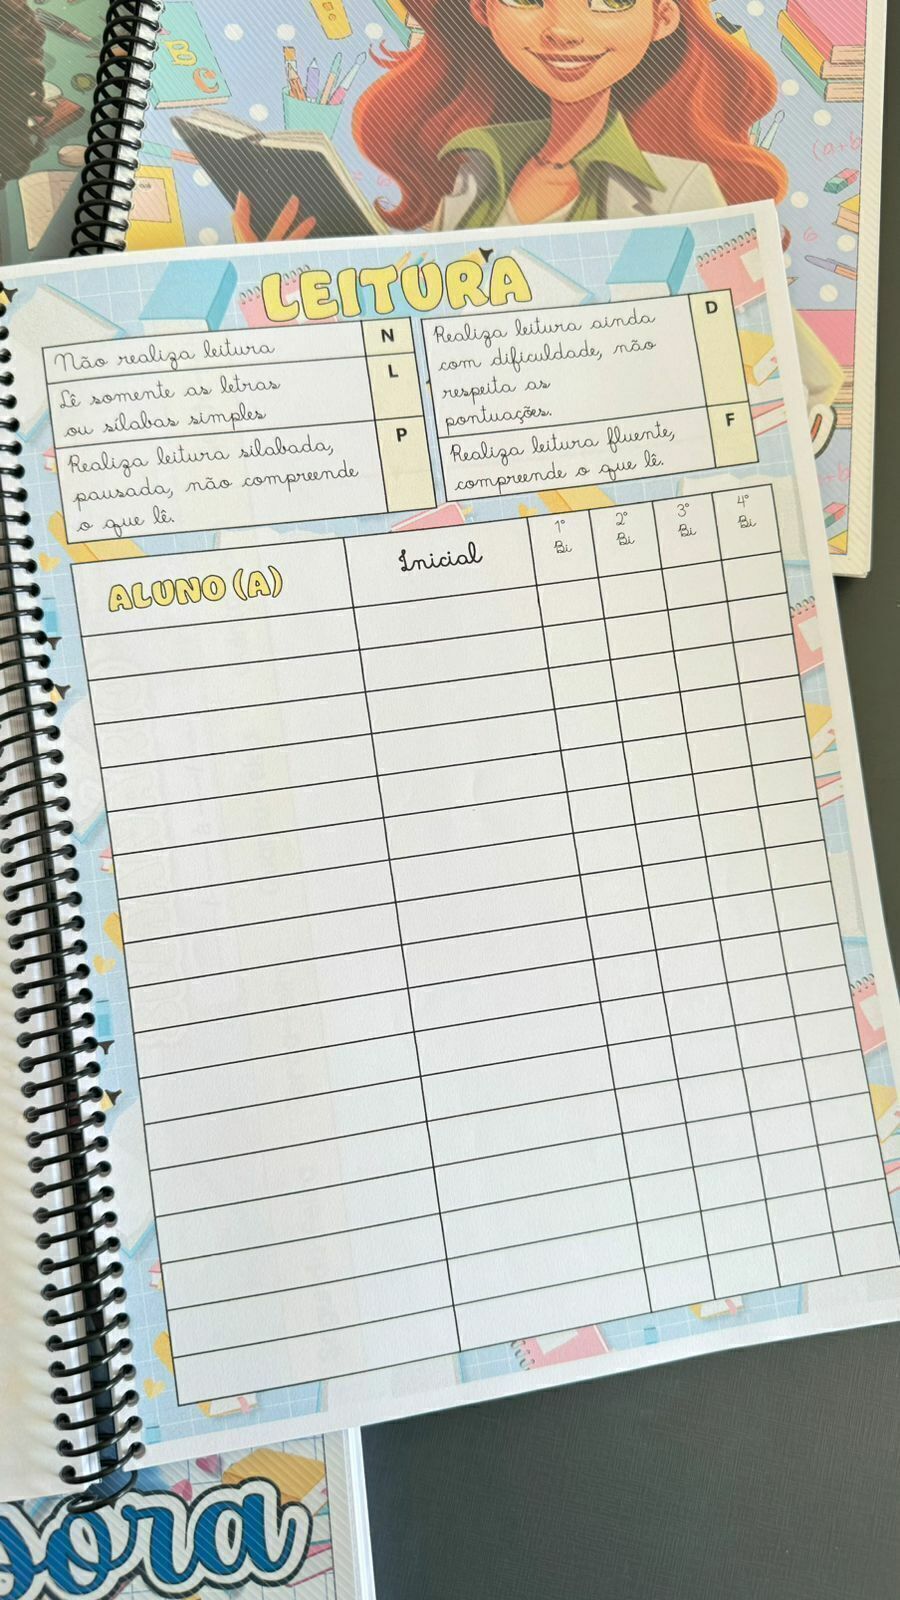 B
C
(a+b
6
LEITURA
Não realiza leitura
N
Lê somente as letras
ou sílabas simples
L
Realiza leitura silabada,
pausada, não compreende
o que lê.
P
Realiza leitura ainda
com dificuldade, não
respeita as
pontuações.
D
Realiza leitura fluente,
compreende o que lê.
F
ALUNO (A)
Inicial
1º
Bi
2º
Bi
3º
Bi
4º
Bi
sora